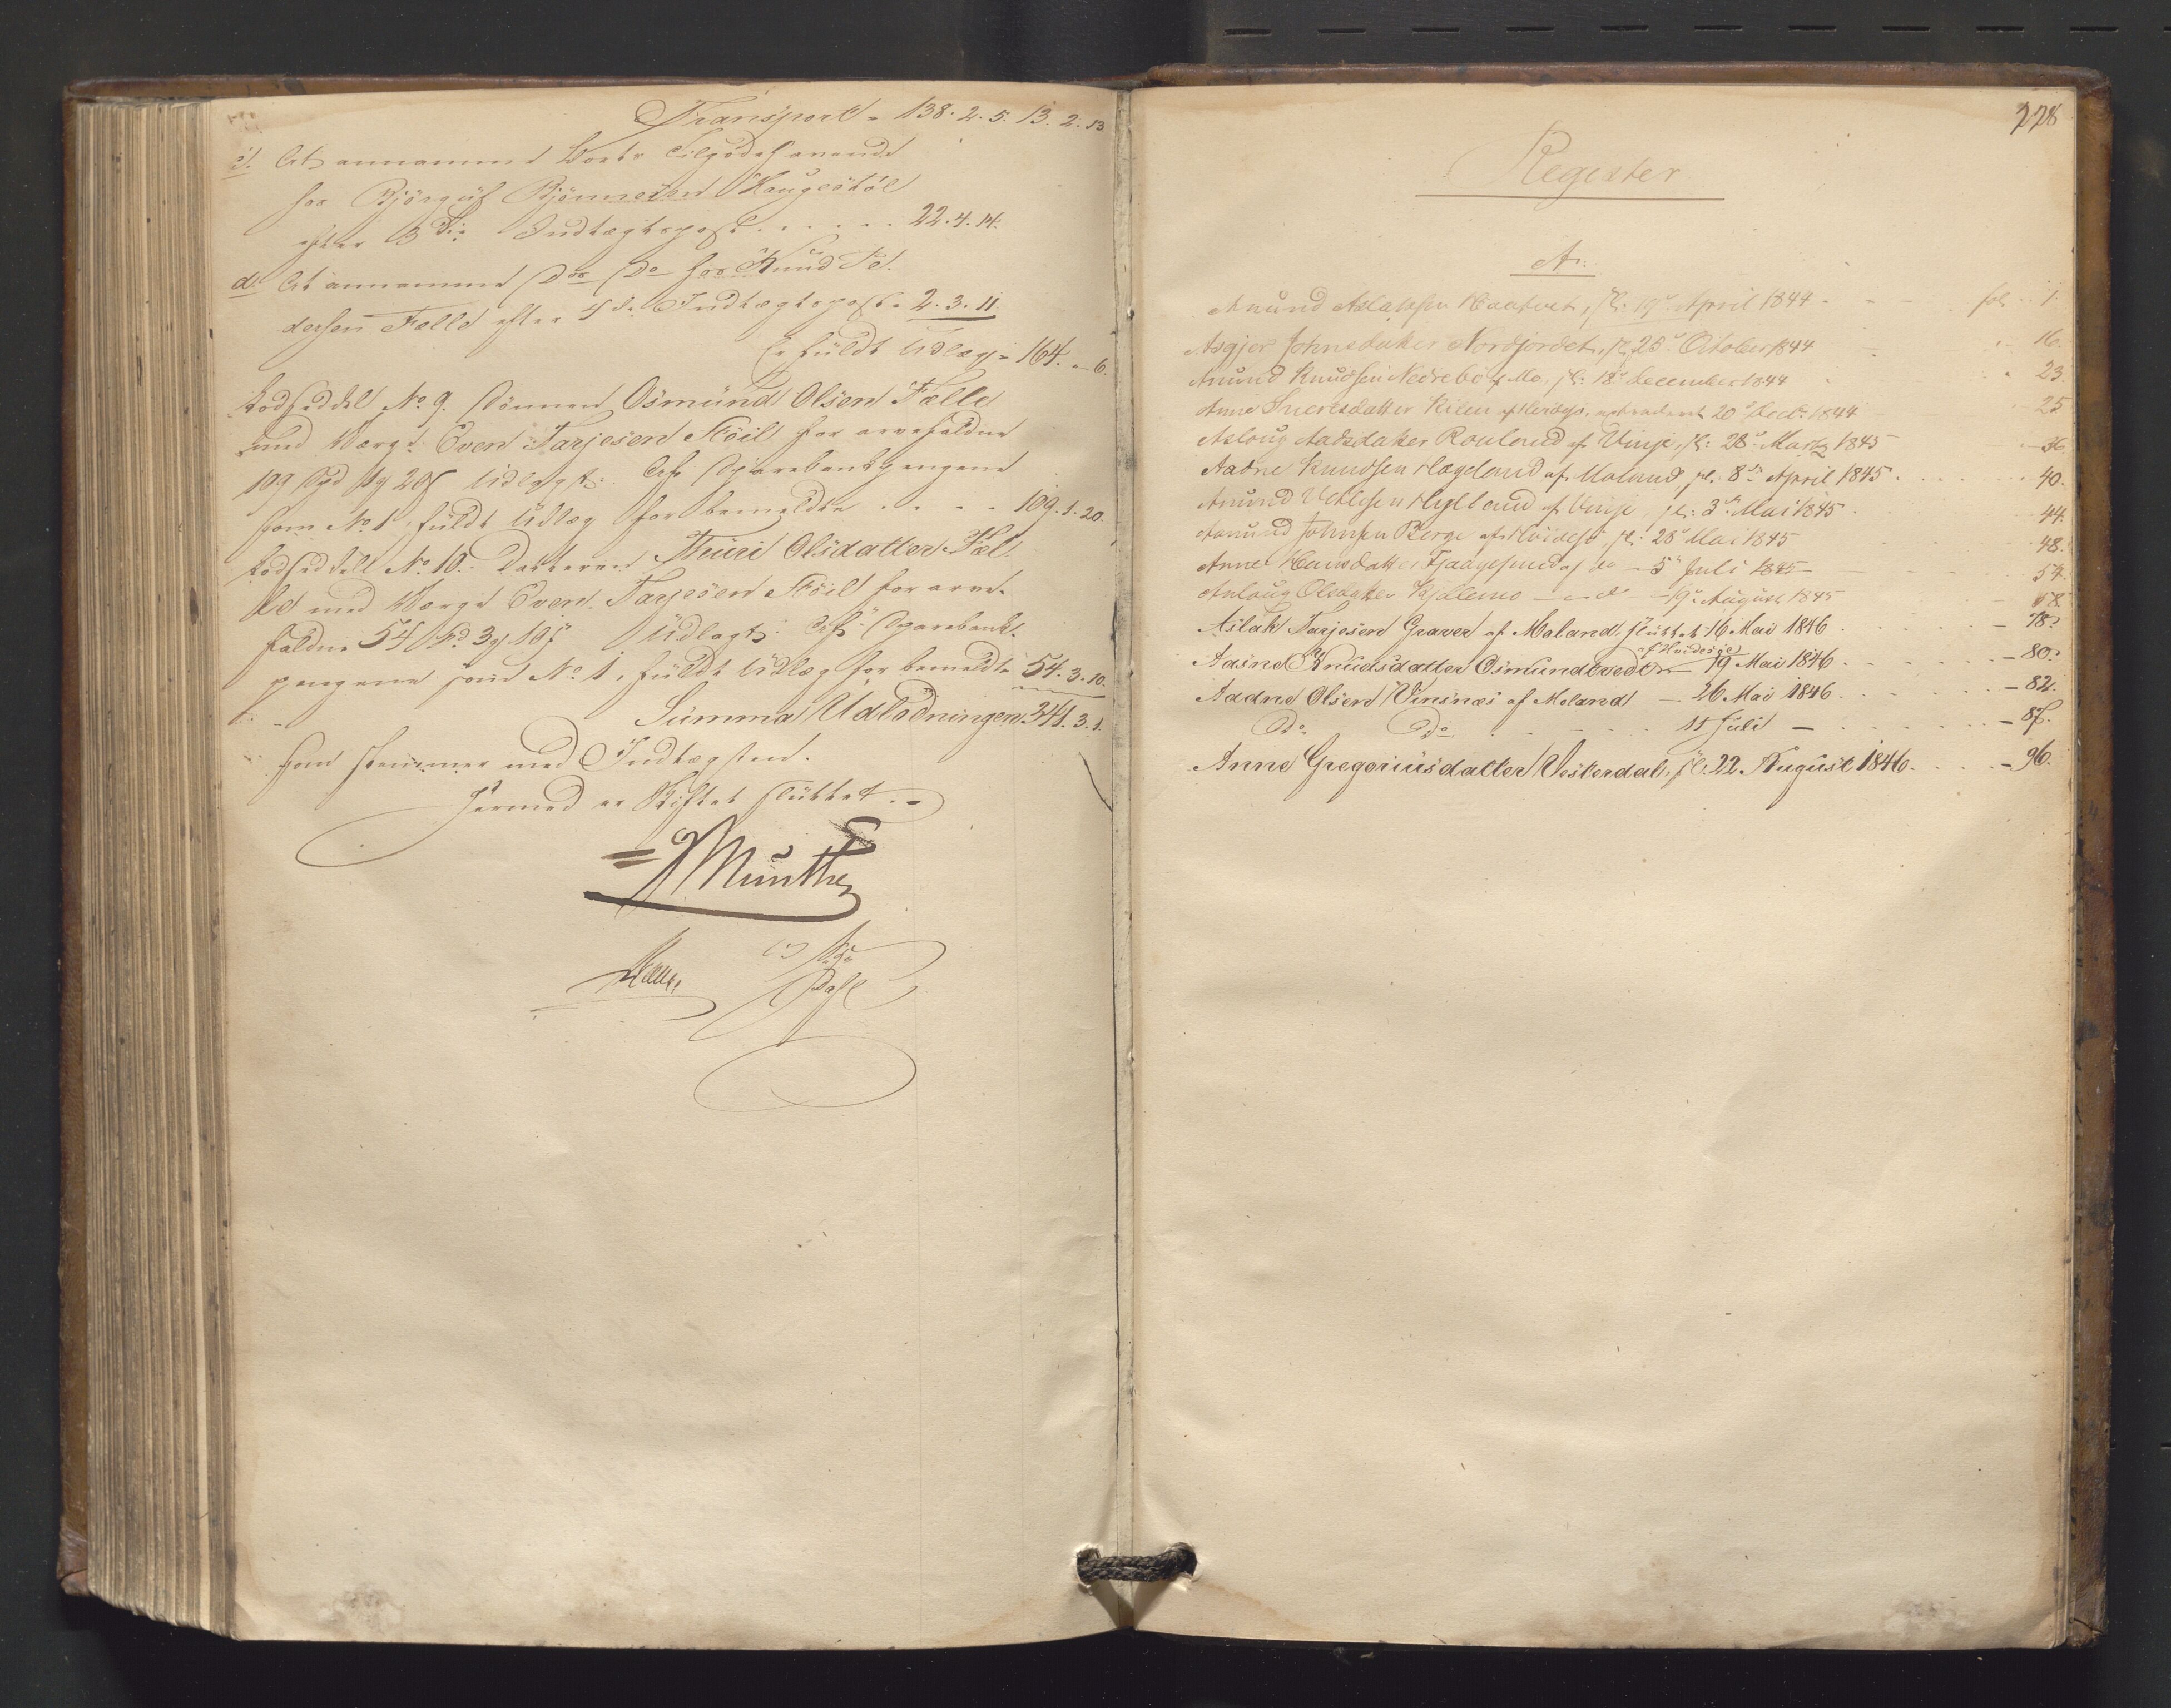 Transport = 138. 2. 5. 13. 2. 13
c/. At annamme Boets Tilgodehavende
hos Björgulf Björnnesen Haugestöl
efter 3die Indtægtspost . . . . . 22. 4. 14.
d. At annamme Do Do hos Knud Pe-
dersen Fælle efter 4de Indtægtspost - 2. 3. 11
Er fuldt Udlæg = 164. - 6.
Lodseddel No 9. Sönnen Osmund Olsen Fælle
med Værge Even Tarjesen Stöil for arvefaldne
109 Spd 1 # 20 s Udlagt: Af Sparebankpengene
som No 1, fuldt Udlæg for bemeldte . . . . 109. 1. 20.
Lodseddell No 10. Datteren Thuri Olsdatter Fæl-
le med Værge Even Tarjesen Stöil for arve-
faldne 54 Spd 3 # 10 s Udlagt: Af Sparebank-
pengene som No 1, fuldt Udlæg for bemeldte 54. 3. 10.
Summa Udlodningen 341. 3. 1.
som stemmer med Indtægten.
Hermed er Skiftet sluttet. -
Munthe
228
Register
A.
Anund Aslaksen Haatvet, sl: 19de April 1844 - - - fol. 1.
Asgjer Johnsdatter Nordjordet, sl. 25de October 1844 16.
Anund Knudsen Nedrebö af Mo, sl: 18de December 1844 23.
Anne Sverresdatter Kilen af Hvidesö, extraderet 20de Decbr. 1844 25
Aslaug Aadsdatter Rauland af Vinje, sl: 28de Marts 1845 36.
Aadne Knudsen Hægeland af Moland, sl. 8de April 1845 . . . . 40.
Anund Vetlesen Hylland af Vinje, sl: 3de Mai 1845 . 44.
Aanund Johnsen Berge af Hvidesö sl: 28de Mai 1845 48.
Anne Hansdatter Fjaagesund af do - 5te Juli 1845 - 54.
Anlaug Olsdatter Kjølemo - do - 9de August 1845 58
Aslak Tarjesen Graver af Moland, sluttet 16 Mai 1846 . . . . . - 78.
af Hvidesöe
Aasne Knudsdatter Osmundtvedt - 19 Mai 1846 . . . . . . - 80.
Aadne Olsen Vinsnæs af Moland - 26 Mai 1846 . . . . . . - 82.
Do Do . . . . . . 11 Juli - . . . . . . - 87.
Anne Gregoriusdatter Vesterdal, sl. 22. August 1846. . . . . - 96.